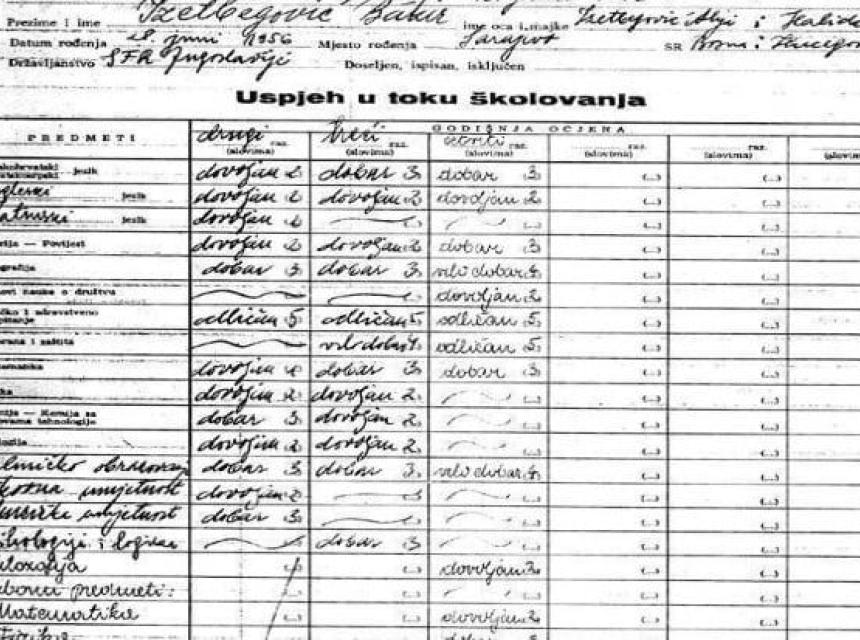 Prezime i ime Izetbegović Bakir ime oca i majke Izetbegović Aliji i Halida
Datum rođenja 28. juni 1956 Mjesto rođenja Sarajevo SR Bosna i Hercegov
Državljanstvo SFR Jugoslavije Doseljen, ispisan, isključen
Uspjeh u toku školovanja
PREDMETI GODIŠNJA OCJENA
drugi raz. treći raz. četvrti raz. raz. raz.
(slovima) (slovima) (slovima) (slovima) (slovima) (slovim
jezik dovoljan 2 dobar 3 dobar 3 (...) (...)
gleski jezik dovoljan 2 dovoljan 2 dovoljan 2 (...) (...)
atinski jezik dovoljan 2 (...) (...) (...)
rija — Povijest dovoljan 2 dovoljan 2 dobar 3 (...) (...)
ografija dobar 3 dobar 3 vrlo dobar 4 (...) (...)
novi nauke o društvu dovoljan 2 (...) (...)
čko i zdravstveno
pitanje odličan 5 odličan 5 odličan 5 (...) (...)
rana i zaštita vrlo dobar 4 odličan 5 (...) (...)
tematika dovoljan 2 dobar 3 dobar 3 (...) (...)
ika dovoljan 2 dovoljan 2 (...) (...) (...)
mija — Kemija sa
ovama tehnologije dobar 3 dovoljan 2 (...) (...) (...)
logija dovoljan 2 dovoljan 2 (...) (...) (...)
hničko obrazovanje dobar 3 dobar 3 vrlo dobar 4 (...) (...)
kovna umjetnost dovoljan 2 (...) (...) (...) (...)
muzička umjetnost dobar 3 (...) (...) (...) (...)
sihologija i logika dobar 3 (...) (...) (...)
ilozofija (...) (...) dovoljan 2 (...) (...)
borni predmeti: (...) (...) (...) (...) (...)
Matematika (...) (...) dovoljan 2 (...) (...)
Fizika